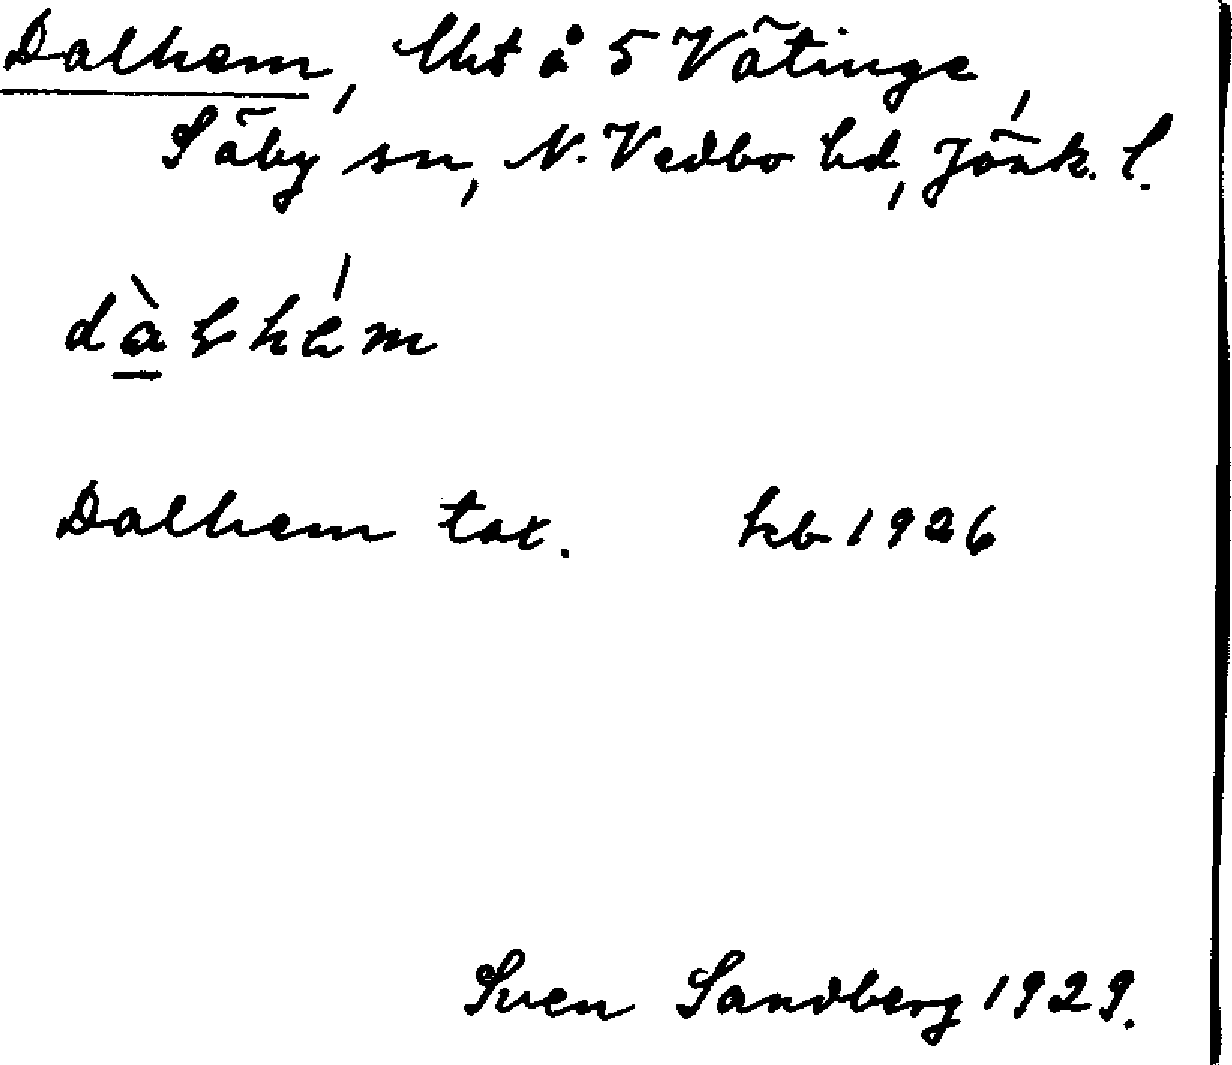 Dalhem, lht å 5 Vätinge,
Säby sn, N. Vedbo hd, Jönk. l.
dàɭhém
Dalhem tax. kb 1926
Sven Sandberg 1929.